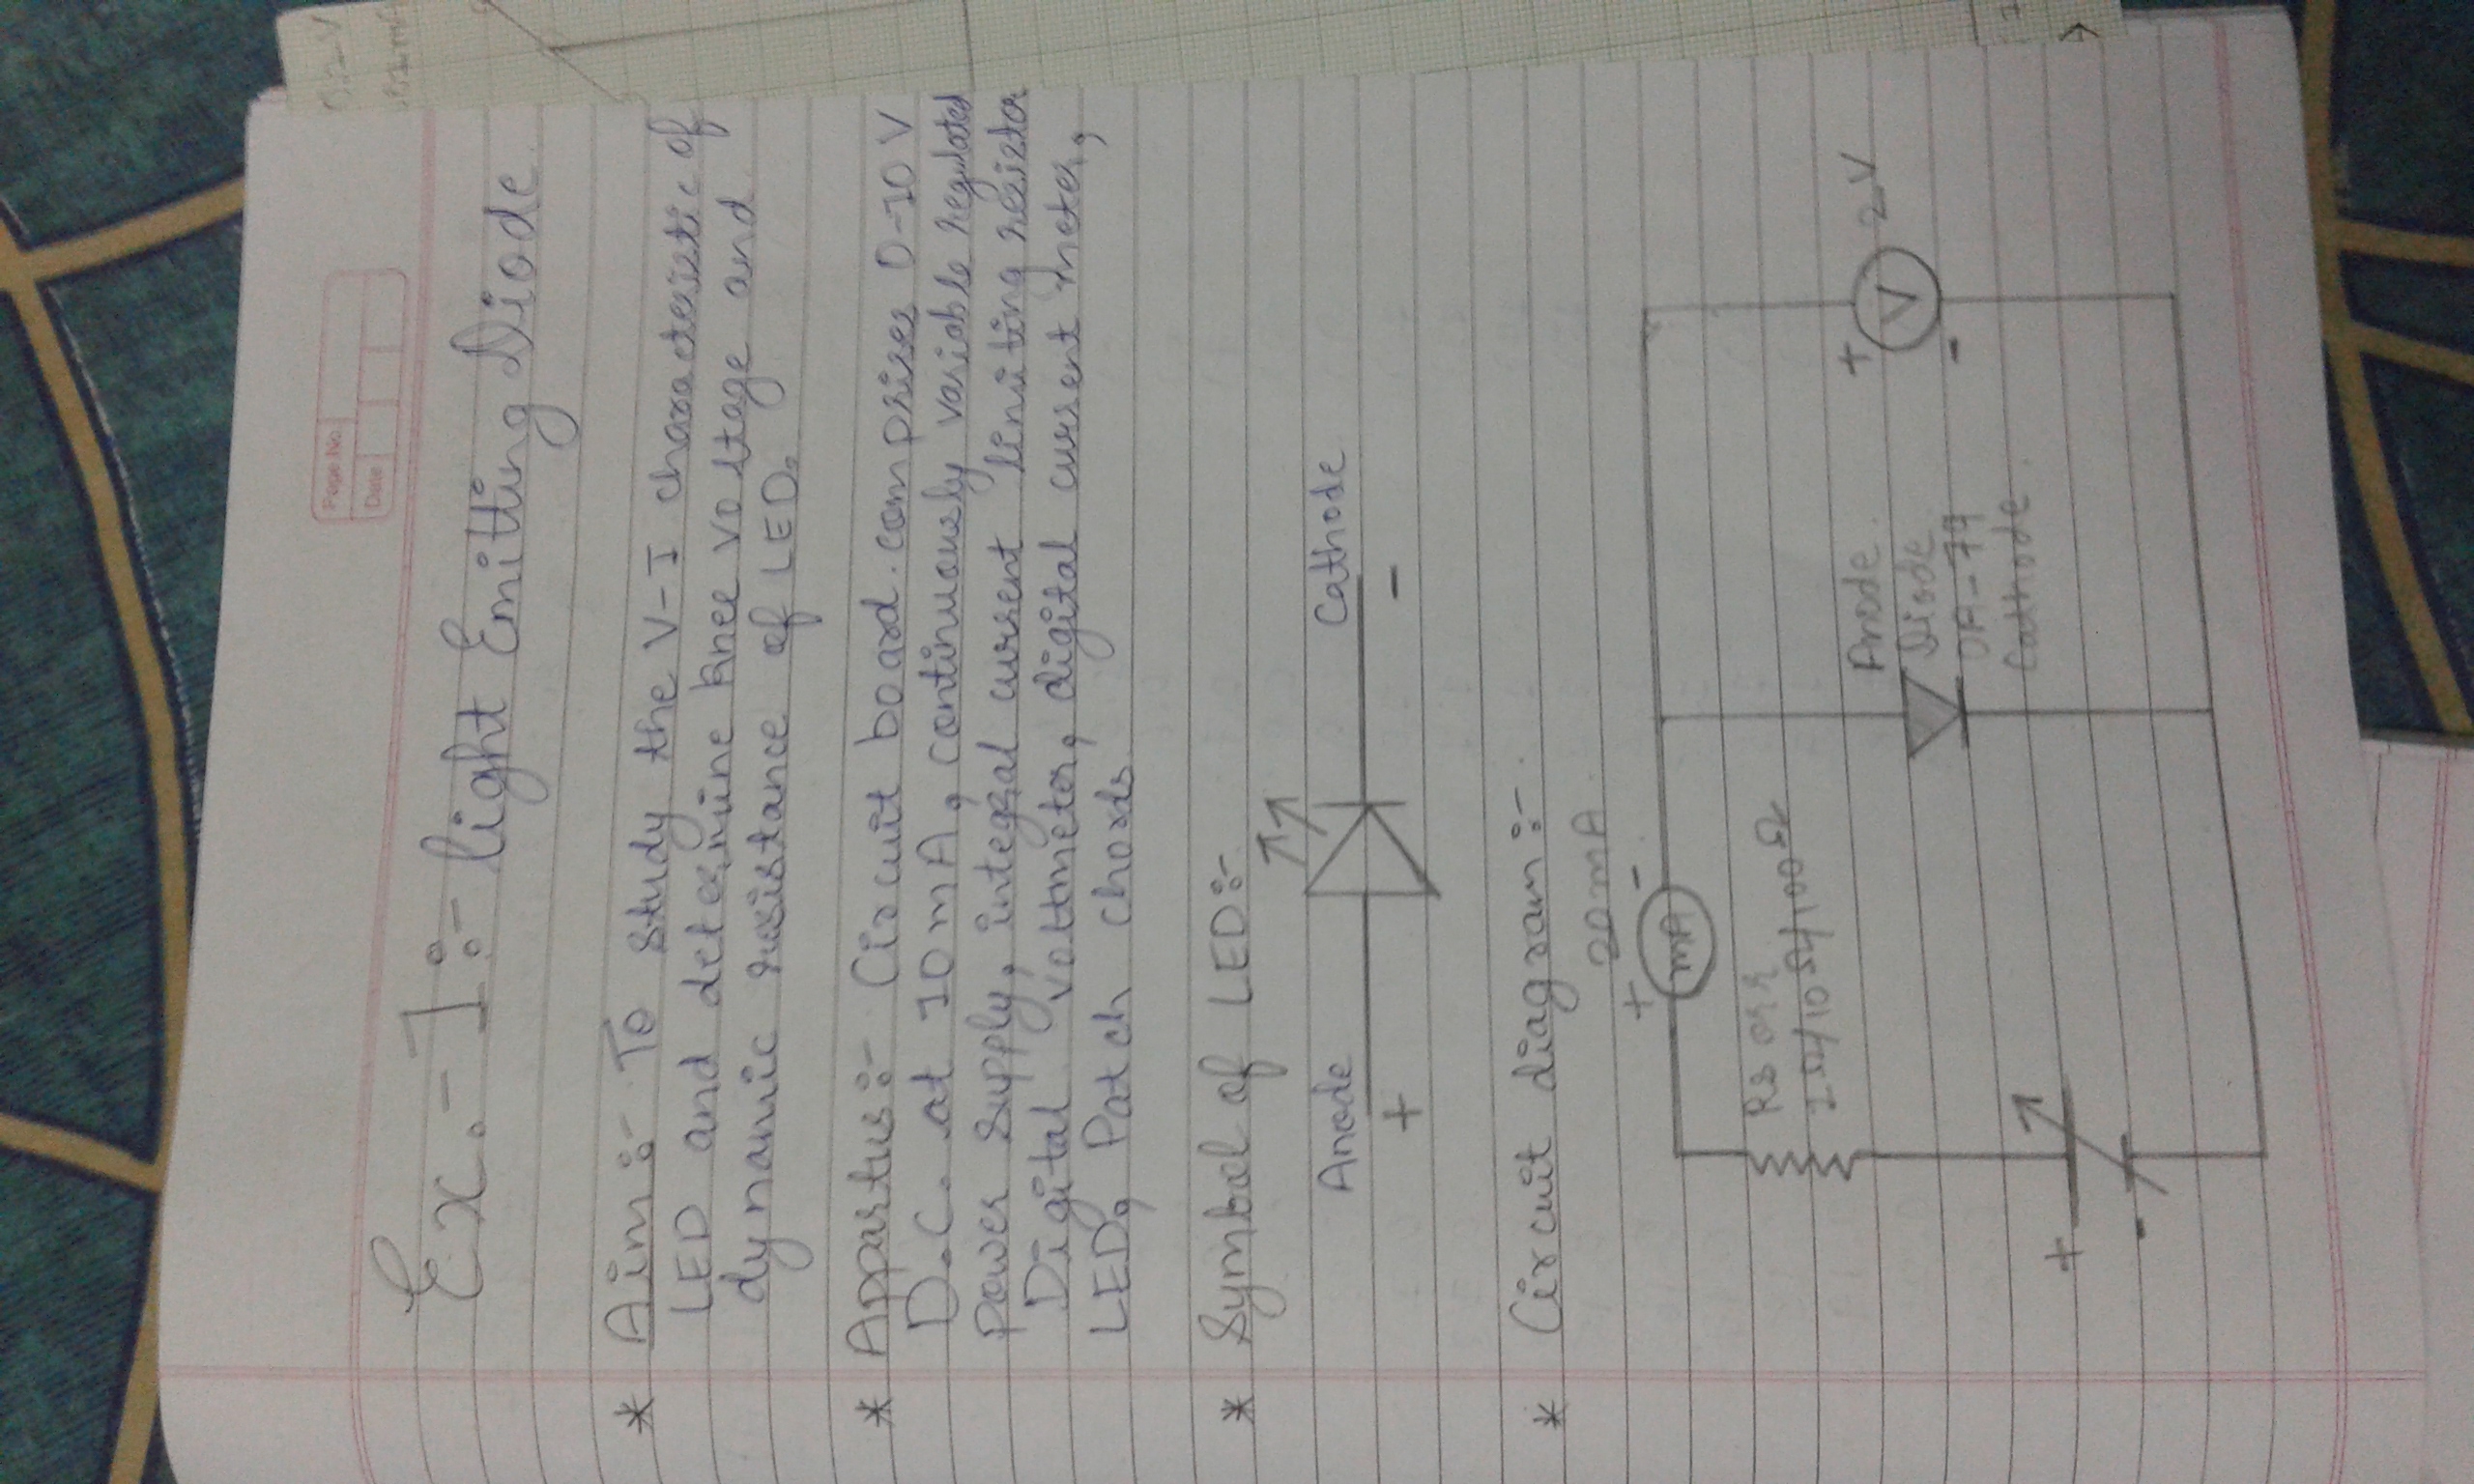 Page No.
Date
Ex.-1:- light Emitting Diode.
* Aim:- To study the V-I characteristic of
LED and determine knee voltage and
dynamic resistance of LED.
* Appartus:- Circuit board comprises 0-10 V
D.C. at 10mA, continuously variable regulated
power supply, integral current limiting resistor
Digital voltmeter, digital current meter,
LED, Patch chords
* Symbol of LED:-
Anode Cathode
+ -
* Circuit diagram:-
20mA
+ -
mA
Rs
1Ω/10Ω/100Ω
Anode
Diode
OA-79
Cathode
+
V 2V
-
+
-